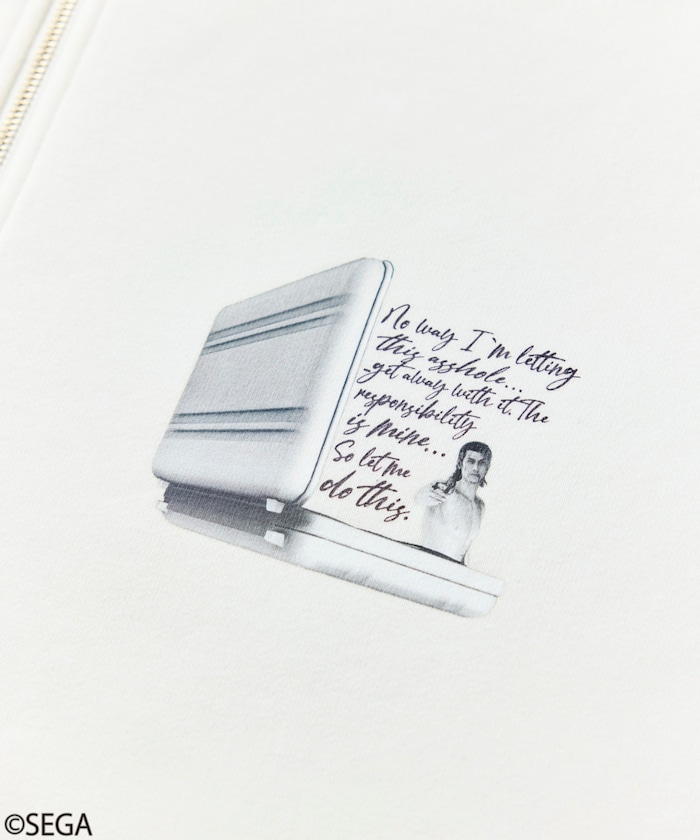 No way I'm letting
this asshole...
get away with it. The
responsibility
is mine...
So let me
do this.
©SEGA